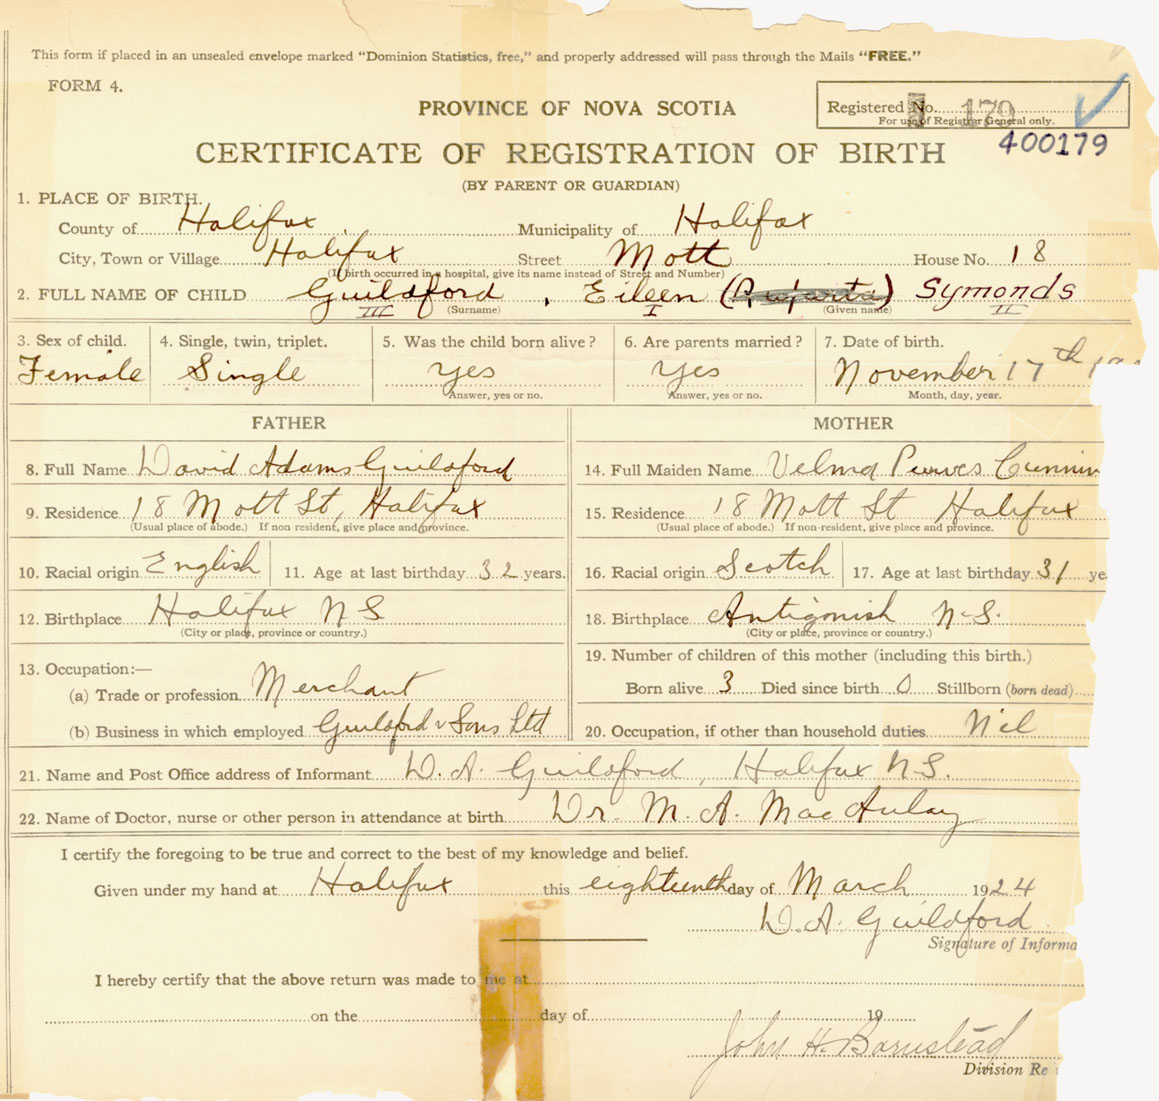 This form if placed in an unsealed envelope marked "Dominion Statistics, free," and properly addressed will pass through the Mails "FREE."
FORM 4.
PROVINCE OF NOVA SCOTIA
Registered No. 179
For use of Registrar General only.
400179
CERTIFICATE OF REGISTRATION OF BIRTH
(BY PARENT OR GUARDIAN)
1. PLACE OF BIRTH.
County of Halifax Municipality of Halifax
City, Town or Village Halifax Street Mott House No. 18
(If birth occurred in a hospital, give its name instead of Street and Number)
2. FULL NAME OF CHILD Guildford, Eileen ( ) Symonds
III (Surname) I (Given name) II
3. Sex of child. 4. Single, twin, triplet. 5. Was the child born alive? 6. Are parents married? 7. Date of birth.
Female Single yes yes November 17th
Answer, yes or no. Answer, yes or no. Month, day, year.
FATHER MOTHER
8. Full Name David Adams Guildford 14. Full Maiden Name Velma Purves Cunnin
9. Residence 18 Mott St, Halifax 15. Residence 18 Mott St Halifax
(Usual place of abode.) If non-resident, give place and province. (Usual place of abode.) If non-resident, give place and province.
10. Racial origin English 11. Age at last birthday 32 years. 16. Racial origin Scotch 17. Age at last birthday 31 ye
12. Birthplace Halifax N S 18. Birthplace Antigonish N.S.
(City or place, province or country.) (City or place, province or country.)
13. Occupation:— 19. Number of children of this mother (including this birth.)
(a) Trade or profession Merchant Born alive 3 Died since birth 0 Stillborn (born dead)
(b) Business in which employed Guildford & Sons Ltd 20. Occupation, if other than household duties Nil
21. Name and Post Office address of Informant D. A. Guildford, Halifax N.S.
22. Name of Doctor, nurse or other person in attendance at birth Dr. M. A. MacAulay
I certify the foregoing to be true and correct to the best of my knowledge and belief.
Given under my hand at Halifax this eighteenth day of March 1924
D. A. Guildford
Signature of Informa
I hereby certify that the above return was made to me at
on the day of 19
John H. Barnstead
Division Re